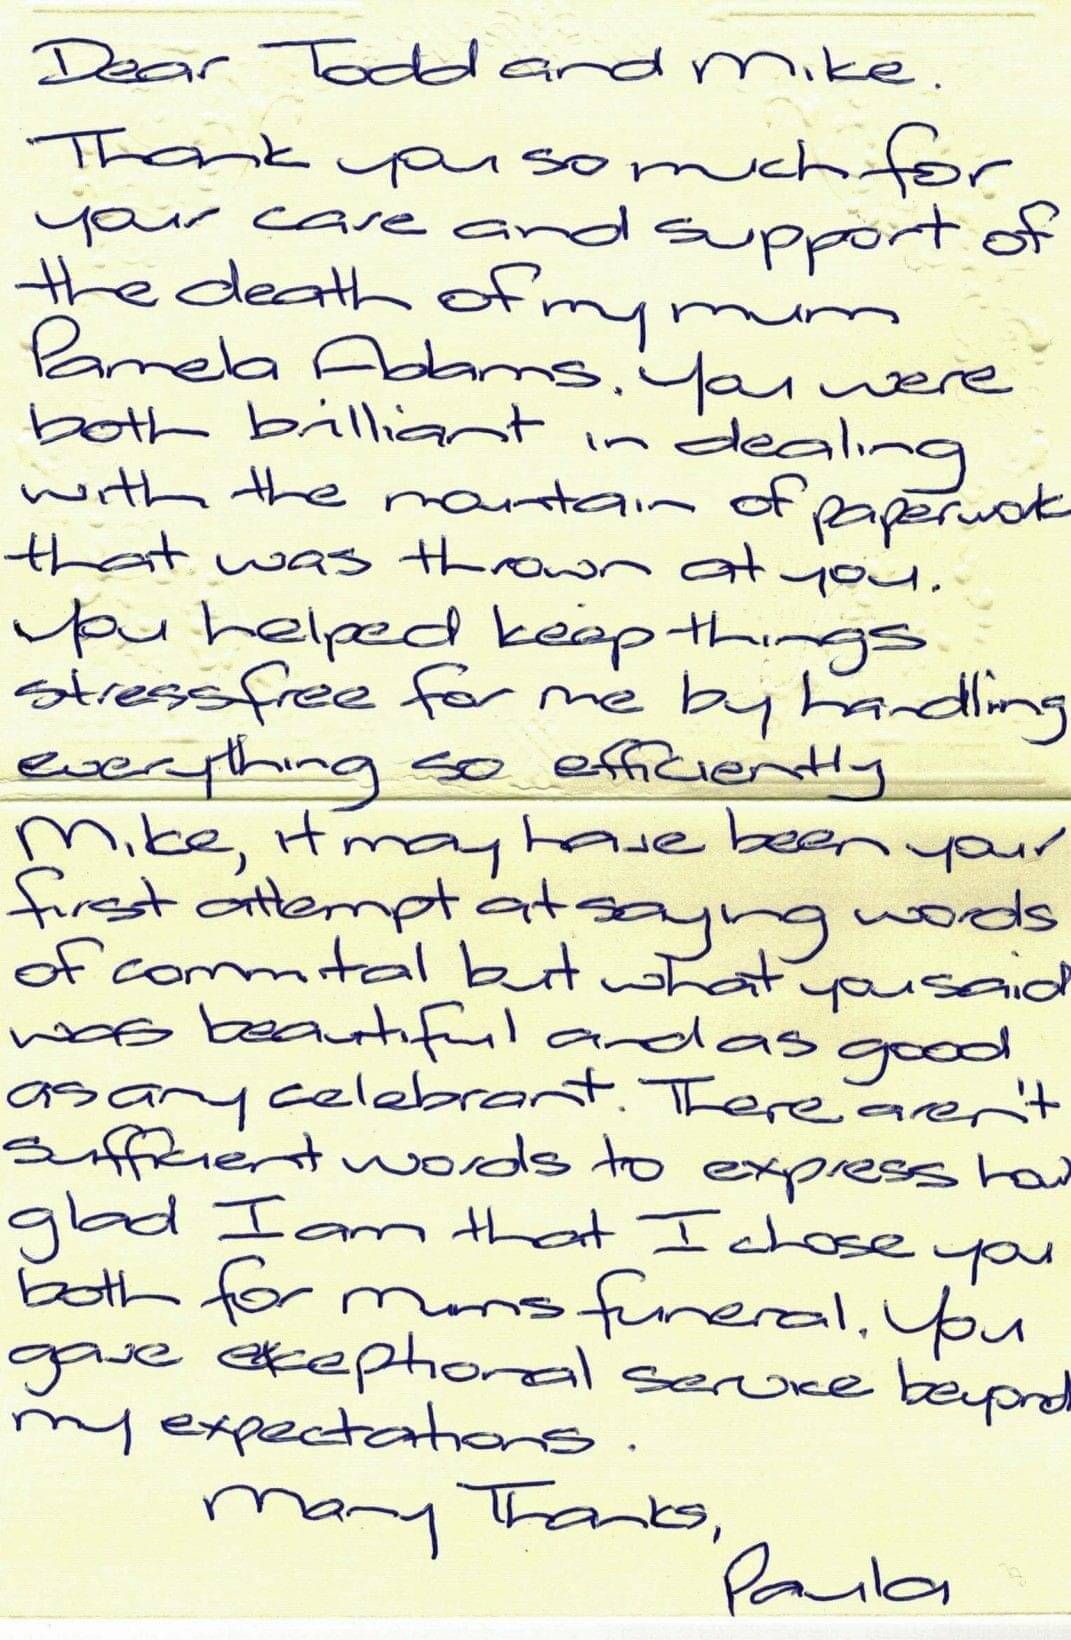 Dear Todd and Mike.
Thank you so much for
your care and support of
the death of my mum
Pamela Adams. You were
both brilliant in dealing
with the mountain of paperwork
that was thrown at you.
You helped keep things
stressfree for me by handling
everything so efficiently
Mike, it may have been your
first attempt at saying words
of commital but what you said
was beautiful and as good
as any celebrant. There aren't
sufficient words to express how
glad I am that I chose you
both for mums funeral. You
gave exceptional service beyond
my expectations.
Many Thanks,
Paula